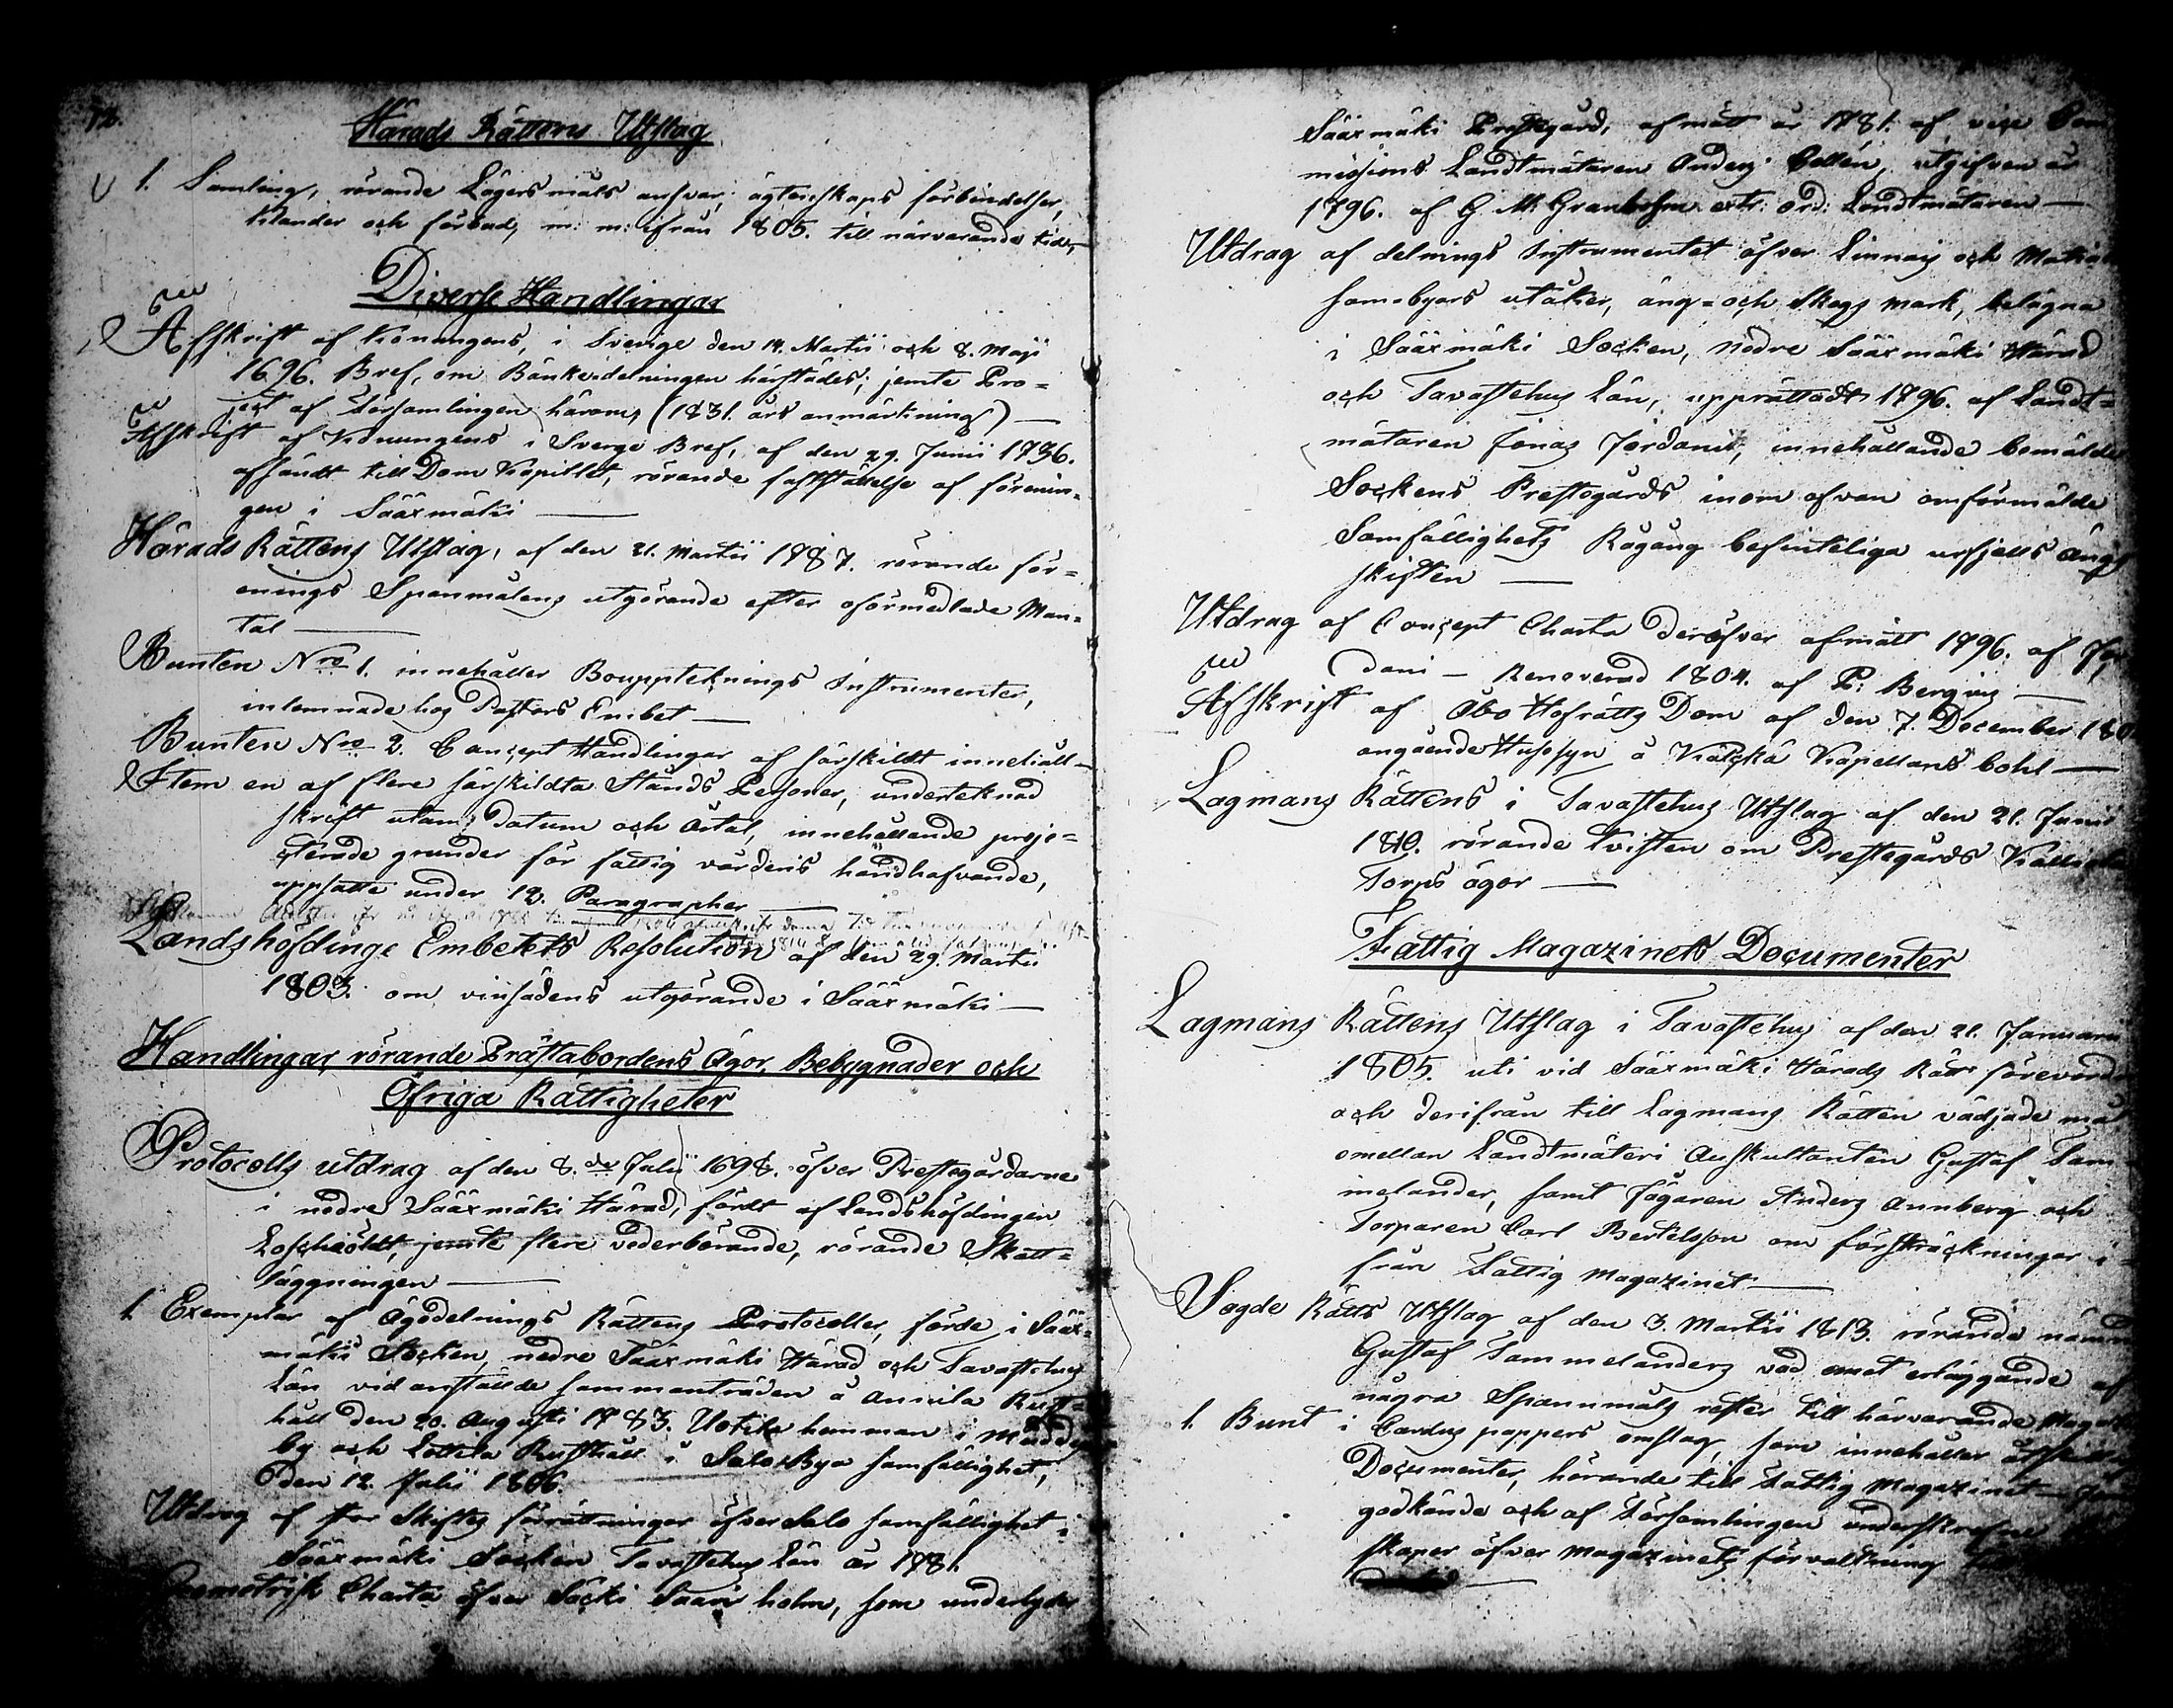 72.
Härads Rättens Utslag
1. Samling, rörande Lägersmåls ansvar, ägtenskaps förbindelser,
klander och förbud, m: m: ifrån 1805. till närvarande tider,
Diverse Handlingar
Afskrift af Konungens, i Sverige den 14. Martii och 8. Maji
1696. Bref, om Bänkeidelningen härstädes; jemte Pro-
ject af Församlingen härom, (1831. års anmärkning) —
Afskrift af Konungens i Sverge Bref, af den 29. Junii 1736.
afsändt till Dom Kapitlet, rörande fastställelse af förenin-
gen i Sääxmäki —
Härads Rättens Utslag, af den 21. Martii 1787. rörande för-
enings Spanmålens utgörande efter oförmedlade Man-
tal —
Bunten Nro 1. innehåller Bouppteknings Instrumenter,
inlemnade hos Pastors Embet —
Bunten Nro 2. Concept Handlingar af särskildt innehåll —
Item en af flere särskildta Stånds Personer, underteknad
skrift utan Datum och Årtal, innehållande proje-
cterade grunder för fattig vårdens handhafvande,
uppsatte under 12. Paragrapher —
Landshöfdinge Embetets Resolution af den 29. Martii
1803. om vinsädens utgörande i Sääxmäki —
Handlingar rörande Prästabordens Ägor, Bebygnader och
Öfriga Rättigheter
Protocolls utdrag af den 8.de Julii 1698. öfver Prestegårdarne
i nedre Sääxmäki Härad, fördt af Landshöfdingen
jemte flere vederbörande, rörande Skatt-
läggningen —
1. Exemplar af Ägodelnings Rättens Protocoller, förde i Sääx-
mäkis Socken, nedre Sääxmäki Härad och Tavastehus
Län vid anstälde sammanträden å Annila Rust-
håll den 20. Augusti 1783. Uotila hemman i
by och Lottila Rusthåll i Salo Bya samfällighet,
Den 12. Julii 1806.
Utdrag af Stor Skiftes förrätningar öfver Salo samfällighet
Sääxmäki Socken Tavastehus Län år 1781.
Geometrisk Charta öfver Säcki Saari holm, som underlyder
Sääxmäki Prestegård, afmätt år 1781. af vice Com
missions Landtmätaren Anders Collén, utgifven år
1796. af G. M. Granholm extr: ord: Landtmätaren —
Utdrag af delnings Instrumentet öfver Linnais och
hemsbyars utåker, äng- och Skogs mark, belägna
i Sääxmäki Socken, Nedre Sääxmäki Härad
och Tavastehus Län, upprättadt 1796. af Landt-
mätaren Jonas Jordanis, innehållande bemälde
Sockens Prestegårds inom ofvan omförmälde
Samfällighets Rågång befinteliga urfjells ängs
skiften —
Utdrag af Concept Charta deröfver afmätt 1796. af Jor
dani — Renoverad 1804. af P: Bergius —
Afskrift af Åbo Hofrätts Dom af den 7. December 180
angående Husesyn å Kapellans bohl —
Lagmans Rättens i Tavastehus Utslag af den 21. Junii
1810. rörande tvisten om Prestegårds
Torps ägor —
Fattig Magazinets Documenter
Lagmans Rättens Utslag i Tavastehus af den 21. Januarii
1805. uti vid Sääxmäki Härads Rätt förevarde
och derifrån till Lagmans Rätten vädjade mål
emellan Landtmäteri Auskultanten Gustaf Tam
melander, samt Jägaren Anders Annberg och
Torparen Carl Bertelsson om försträckningar i
från Fattig Magazinet —
Sagde Rätts Utslag af den 3. Martii 1813. rörande nämnde
Gustaf Tammelanders vad emot erläggande af
några Spannmåls rester till härvarande Magazin
1. Bunt i Cardus pappers omslag, som innehåller åtskillige
Documenter, hörande till Fattig Magazinet —
godkände och af Församlingen underskrefne
skaper öfver Magazinets förvaltning